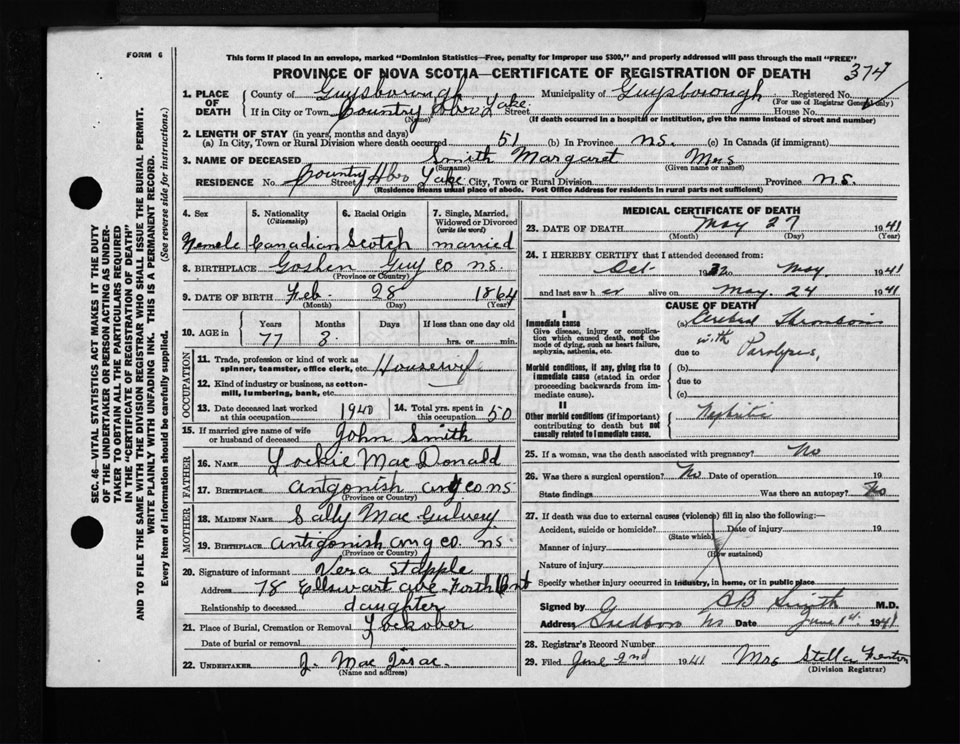 FORM 6
This form if placed in an envelope, marked "Dominion Statistics—Free, penalty for improper use $300," and properly addressed will pass through the mail "FREE"
PROVINCE OF NOVA SCOTIA—CERTIFICATE OF REGISTRATION OF DEATH 374
1. PLACE OF DEATH County of Guysborough Municipality of Guysborough Registered No.
(For use of Registrar General only)
If in City or Town Country Hbr Lake Street House No.
(Name)
(If death occurred in a hospital or institution, give the name instead of street and number)
2. LENGTH OF STAY (in years, months and days)
(a) In City, Town or Rural Division where death occurred 51 (b) In Province N.S. (c) In Canada (if immigrant)
3. NAME OF DECEASED Smith Margaret Mrs
(Surname) (Given name or names)
RESIDENCE No. Country Hbr Lake Street City, Town or Rural Division Province N.S.
(Residence means usual place of abode. Post Office Address for residents in rural parts not sufficient)
SEC. 46—VITAL STATISTICS ACT MAKES IT THE DUTY
OF THE UNDERTAKER OR PERSON ACTING AS UNDER-
TAKER TO OBTAIN ALL THE PARTICULARS REQUIRED
IN THE "CERTIFICATE OF REGISTRATION OF DEATH"
AND TO FILE THE SAME WITH THE DIVISION REGISTRAR WHO SHALL ISSUE THE BURIAL PERMIT.
WRITE PLAINLY WITH UNFADING INK. THIS IS A PERMANENT RECORD.
Every item of information should be carefully supplied. (See reverse side for instructions.)
4. Sex 5. Nationality (Citizenship) 6. Racial Origin 7. Single, Married, Widowed or Divorced (write the word)
Female Canadian Scotch married
8. BIRTHPLACE Goshen Guy Co N.S.
(Province or Country)
9. DATE OF BIRTH Feb. 28 1864
(Month) (Day) (Year)
10. AGE in Years Months Days If less than one day old
77 3 hrs. or min.
OCCUPATION
11. Trade, profession or kind of work as spinner, teamster, office clerk, etc. Housewife
12. Kind of industry or business, as cotton-mill, lumbering, bank, etc.
13. Date deceased last worked at this occupation 1940 14. Total yrs. spent in this occupation 50
15. If married give name of wife or husband of deceased John Smith
FATHER
16. NAME Lockie MacDonald
17. BIRTHPLACE Antgonish Ant co N.S
(Province or Country)
MOTHER
18. MAIDEN NAME Sally Mac Gulvery
19. BIRTHPLACE Antigonish Ang co. N.S.
(Province or Country)
20. Signature of informant Vera Stapple
Address 78 ave
Relationship to deceased daughter
21. Place of Burial, Cremation or Removal
Date of burial or removal
22. UNDERTAKER J. Mac Issac.
(Name and address)
MEDICAL CERTIFICATE OF DEATH
23. DATE OF DEATH May 27 1941
(Month) (Day) (Year)
24. I HEREBY CERTIFY that I attended deceased from:
Oct to May. 1941
and last saw her alive on May. 24 1941
CAUSE OF DEATH
I
Immediate cause (a) Cerebral Thrombosis
Give disease, injury or complication which caused death, not the mode of dying, such as heart failure, asphyxia, asthenia, etc. due to with Paralysis,
Morbid conditions, if any, giving rise to immediate cause (stated in order proceeding backwards from immediate cause). (b)
due to
(c)
II
Other morbid conditions (if important) contributing to death but not causally related to immediate cause. Nephritis
25. If a woman, was the death associated with pregnancy? No
26. Was there a surgical operation? No Date of operation 19
State findings Was there an autopsy? No
27. If death was due to external causes (violence) fill in also the following:—
Accident, suicide or homicide? Date of injury 19
(State which)
Manner of injury
(How sustained)
Nature of injury
Specify whether injury occurred in industry, in home, or in public place
Signed by Smith M.D.
Address N.S Date June 1st. 1941
28. Registrar's Record Number
29. Filed June 2nd 1941 Mrs Stella Fenton
(Division Registrar)